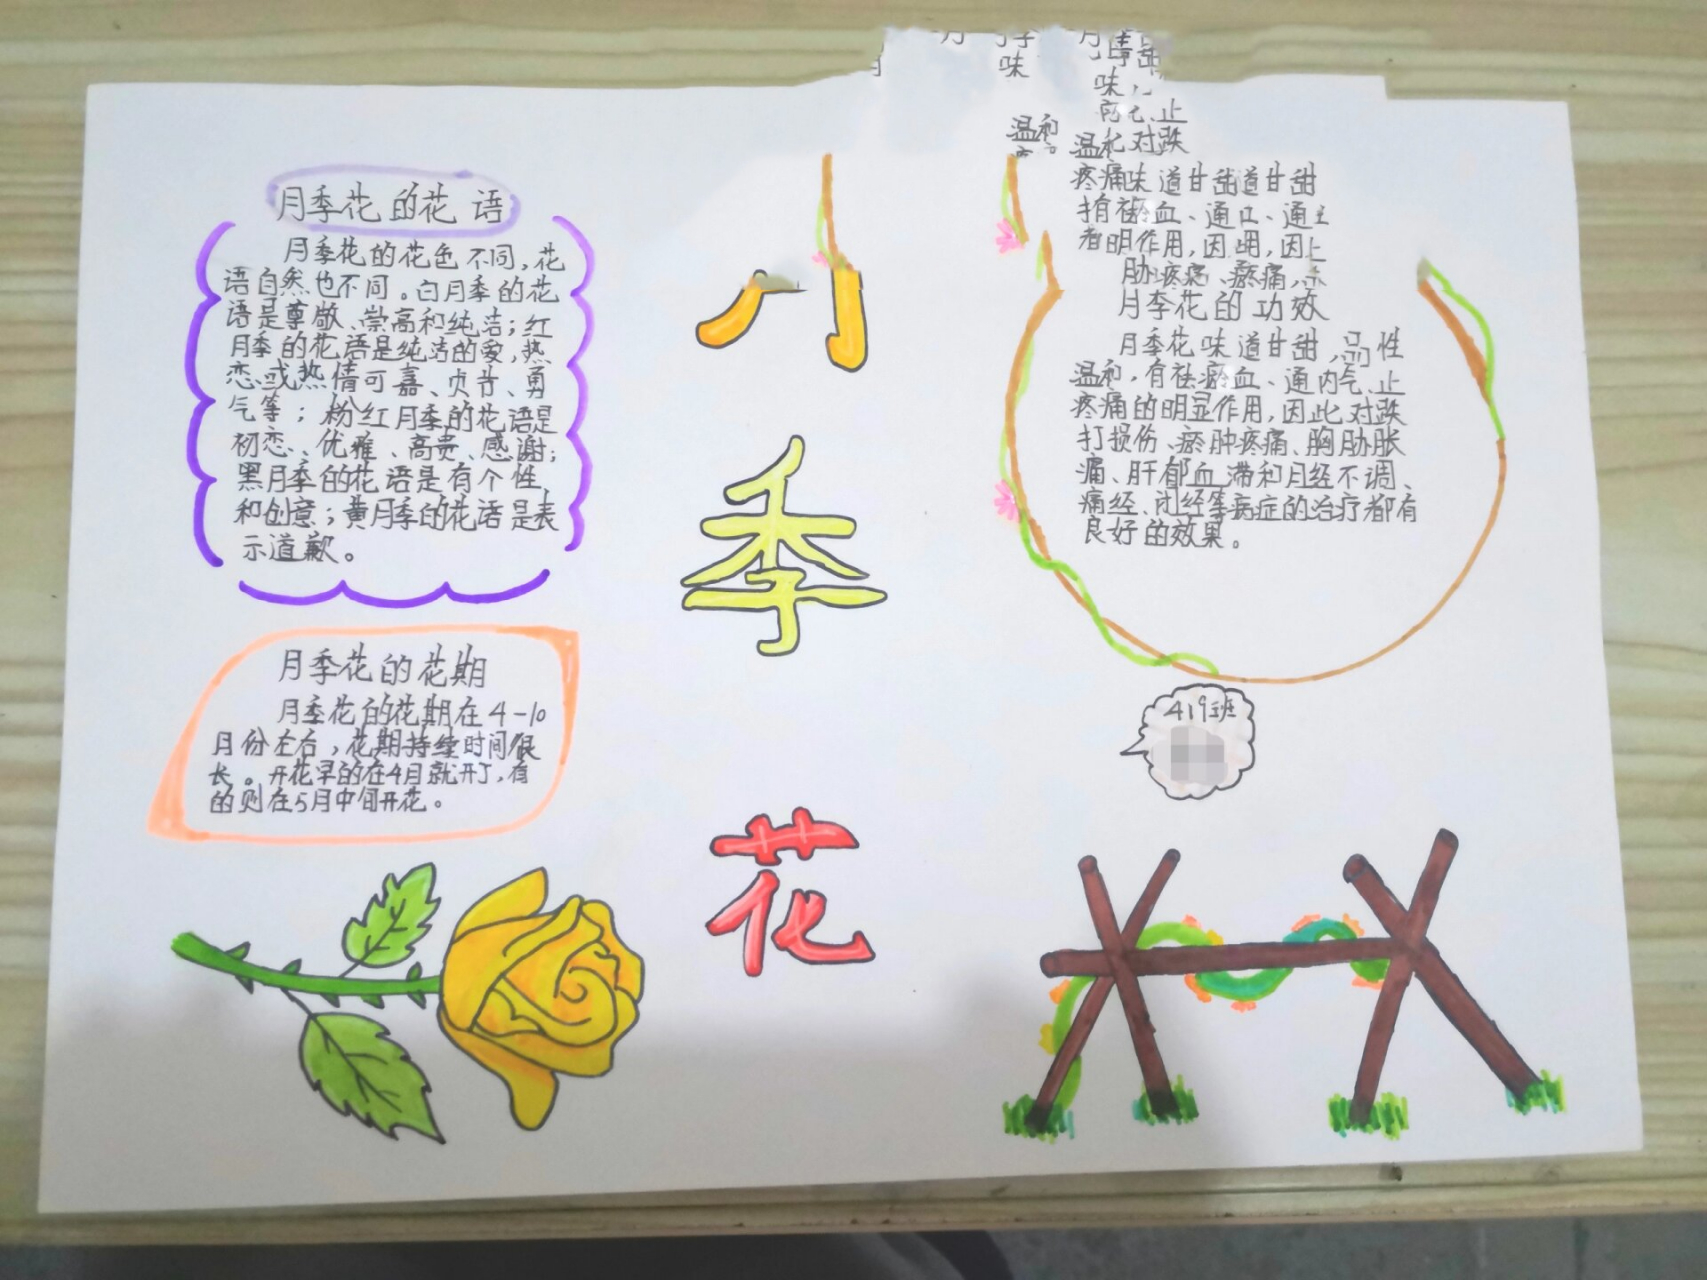 月季花的花语
月季花的花色不同,花
语自然也不同。白月季的花
语是尊敬、崇高和纯洁;红
月季的花语是纯洁的爱,热
恋或热情可嘉、贞节、勇
气等;粉红月季的花语是
初恋、优雅、高贵、感谢;
黑月季的花语是有个性
和创意;黄月季的花语是表
示道歉。
月季花的花期
月季花的花期在4-10
月份左右,花期持续时间很
长。开花早的在4月就开了,有
的则在5月中旬开花。
季
花
味
味
止
温和
对跌
疼痛味道甘甜道甘甜
血、通
明作用,因
疼痛
月季花的功效
月季花味道甘甜,品性
温和,有祛瘀血、通内气、止
疼痛的明显作用,因此对跌
打损伤、瘀肿疼痛、胸胁胀
痛、肝郁血滞和月经不调、
痛经、闭经等病症的治疗都有
良好的效果。
419班